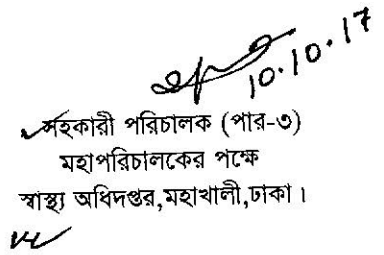 10.10.17
সহকারী পরিচালক (পার-৩)
মহাপরিচালকের পক্ষে
স্বাস্থ্য অধিদপ্তর,মহাখালী,ঢাকা।